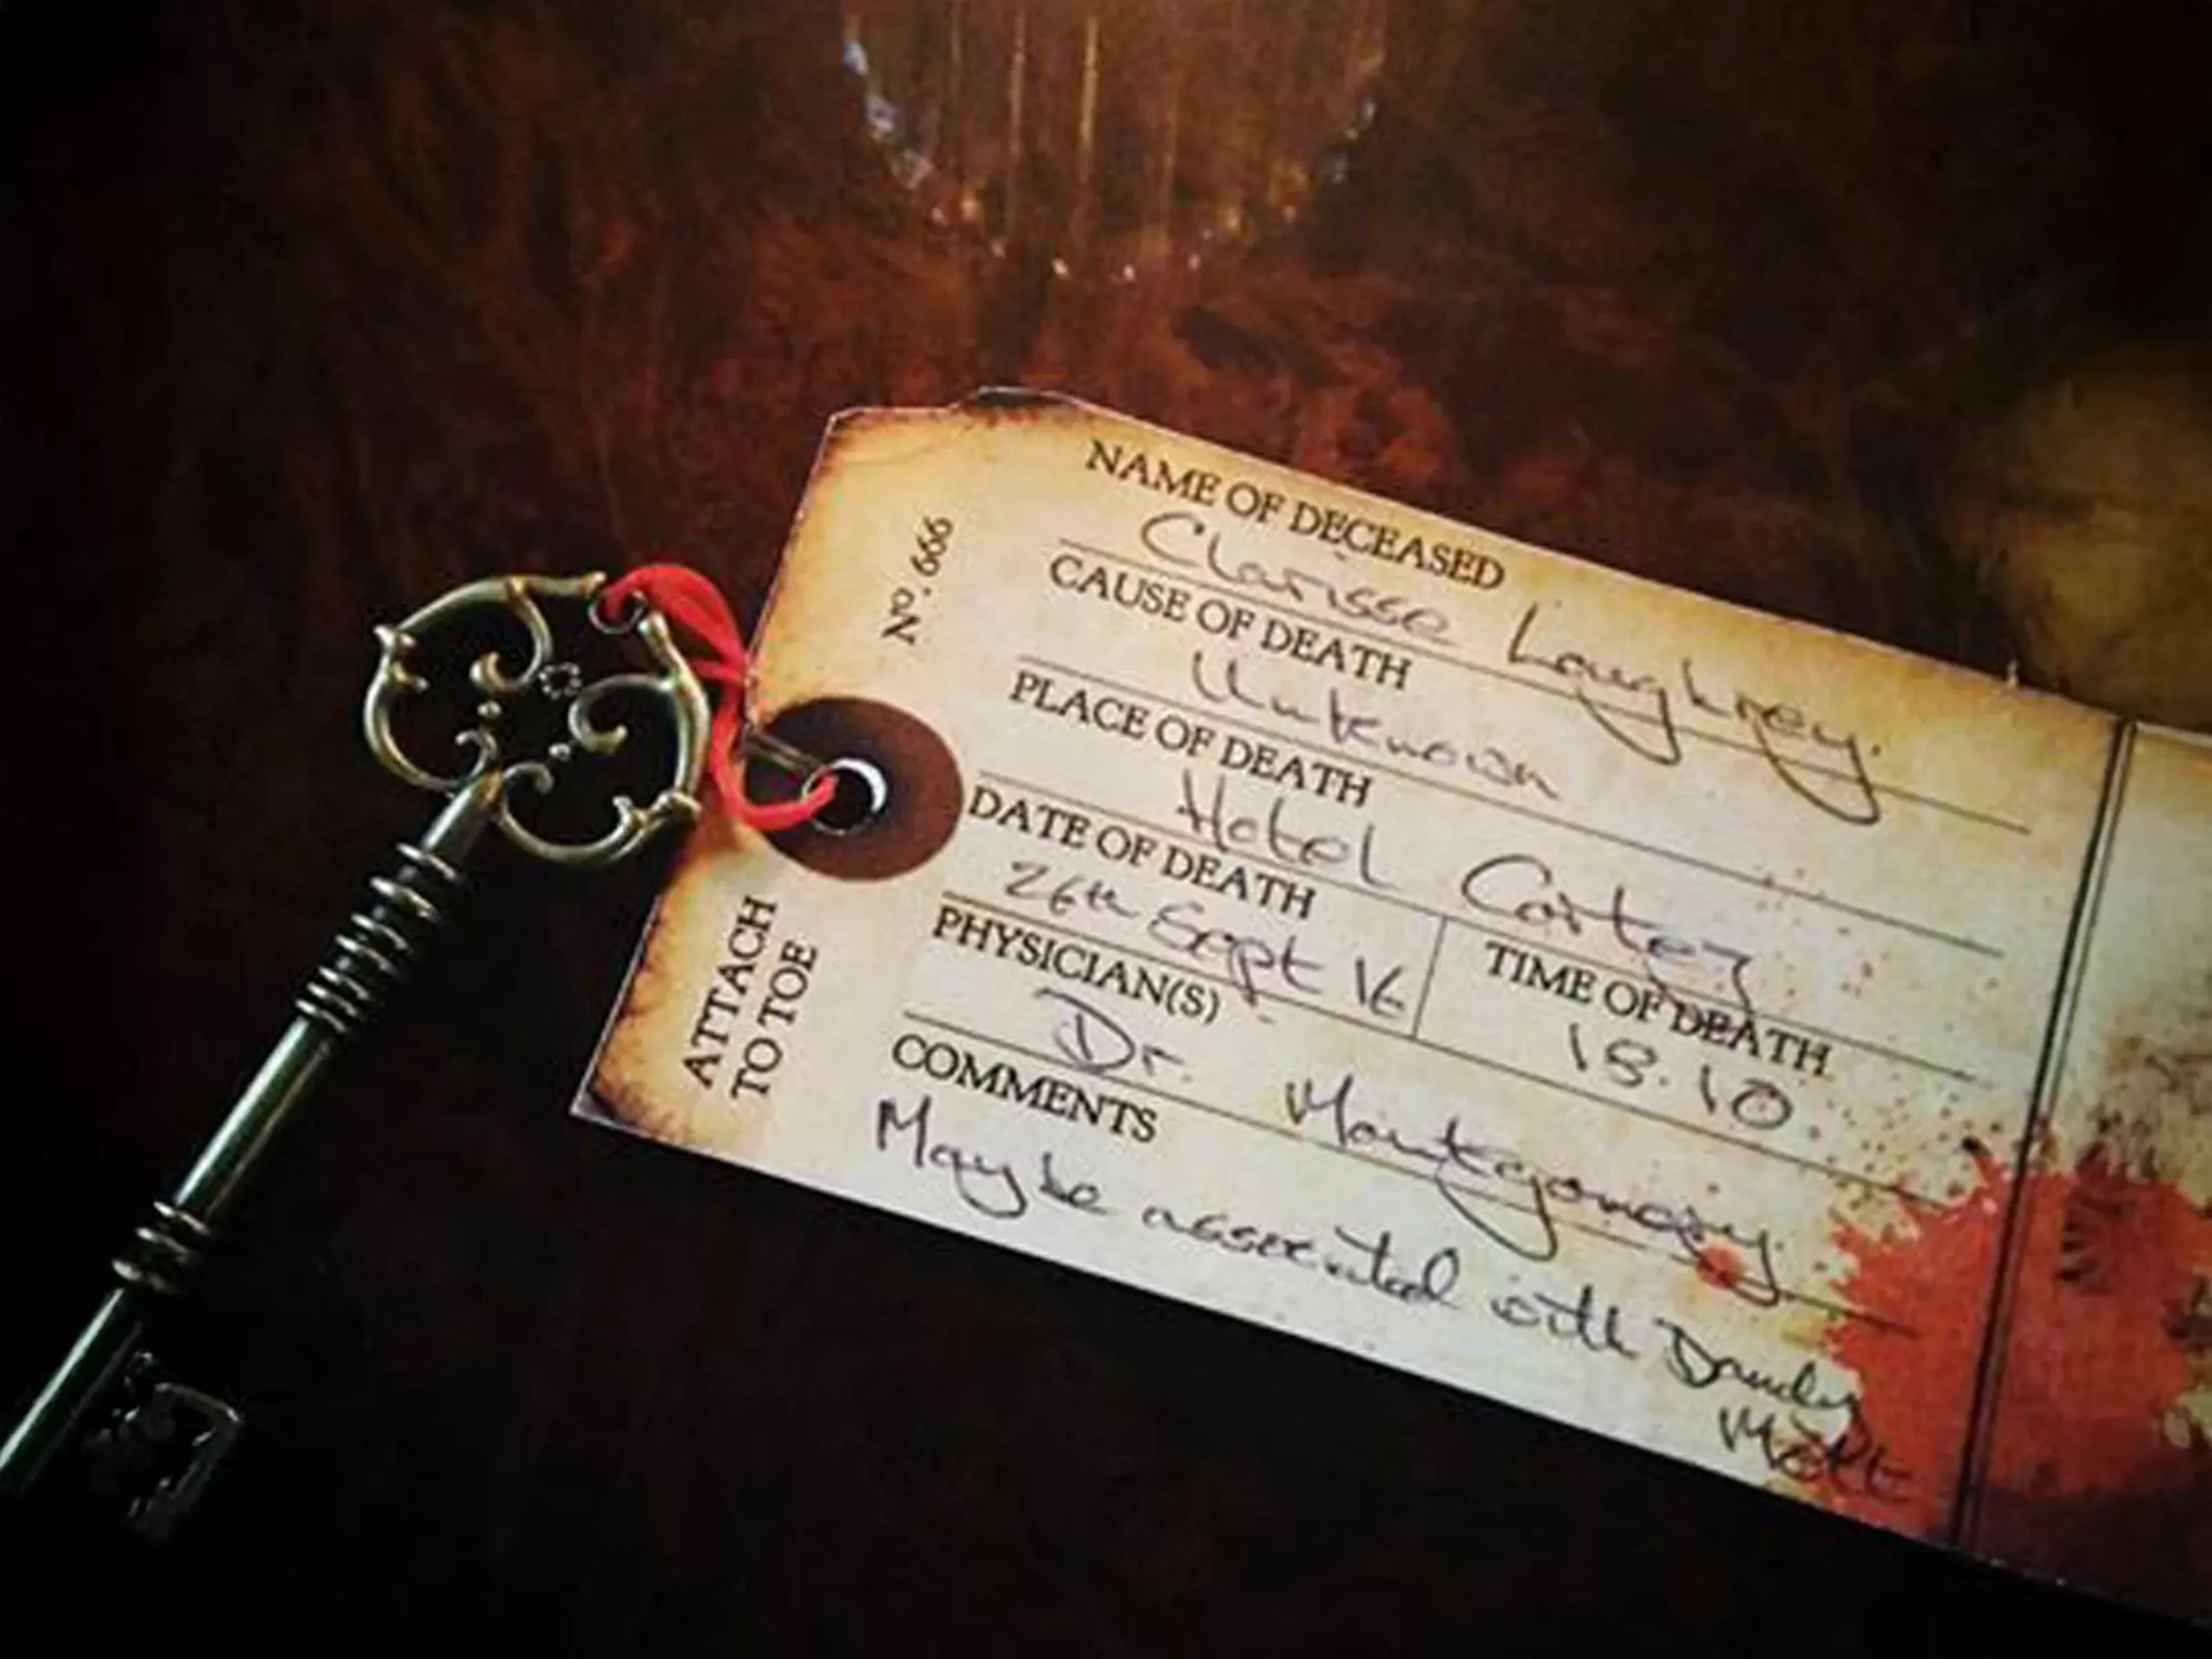 No. 666
ATTACH
TO TOE
NAME OF DECEASED
Clarisse Loughrey.
CAUSE OF DEATH
Unknown
PLACE OF DEATH
Hotel Cortez
DATE OF DEATH
26th Sept 16
TIME OF DEATH
18.10.
PHYSICIAN(S)
Dr. Montgomery.
COMMENTS
Maybe associated with Dandy
Mott